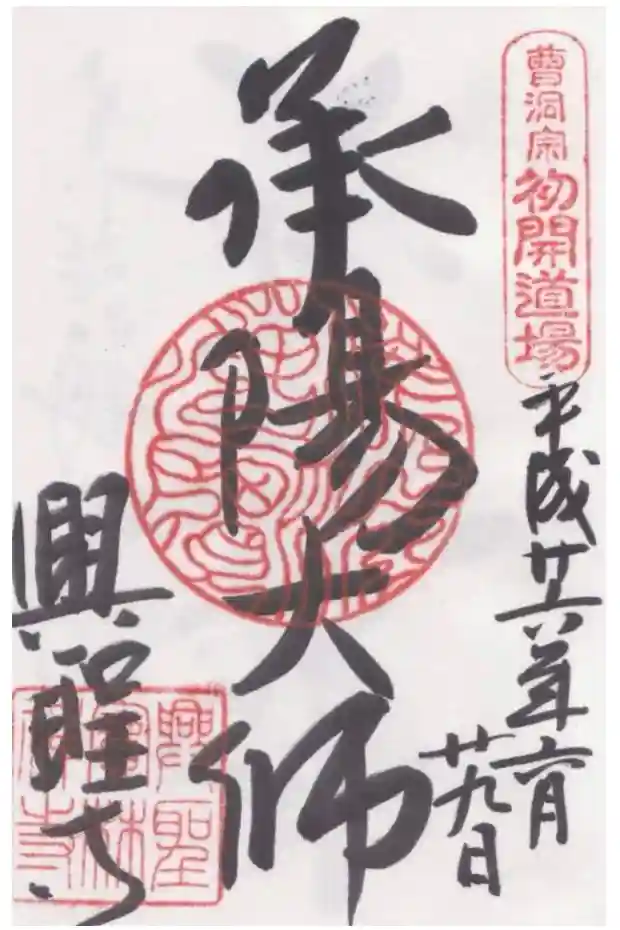 曹洞宗初開道場
平成廿六年六月
廿九日
承陽大師
興聖寺
興聖